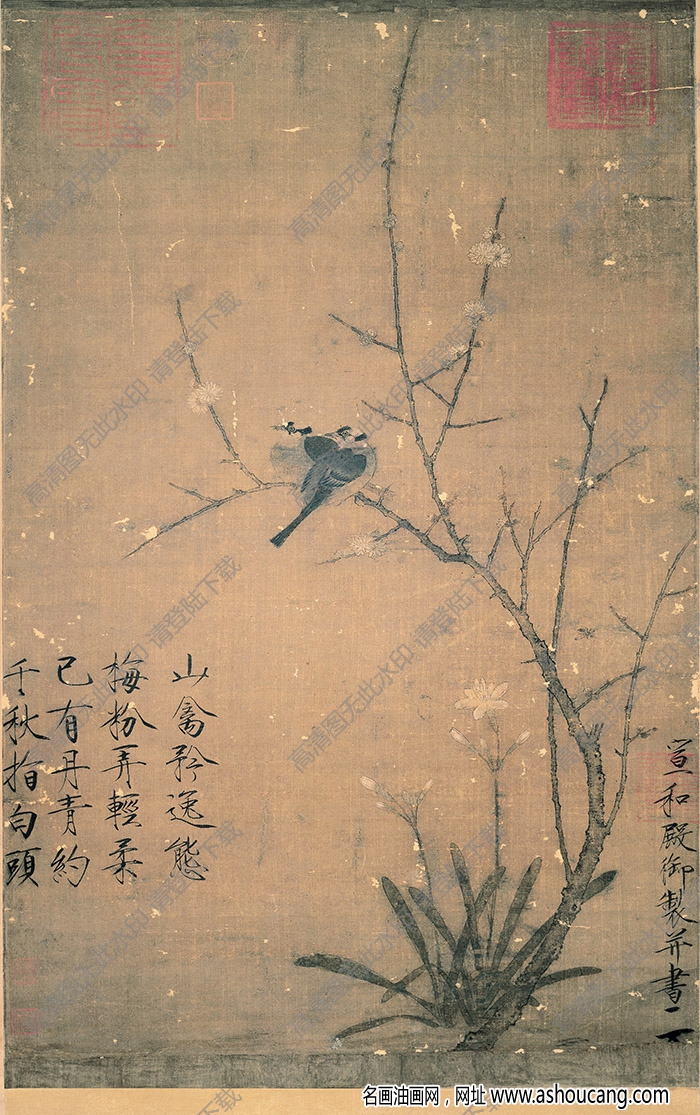 山禽矜逸態
梅粉弄輕柔
已有丹青約
千秋指白頭
宣和殿御製并書
高清图无此水印·请登陆下载
名画油画网，网址 www.ashoucang.com